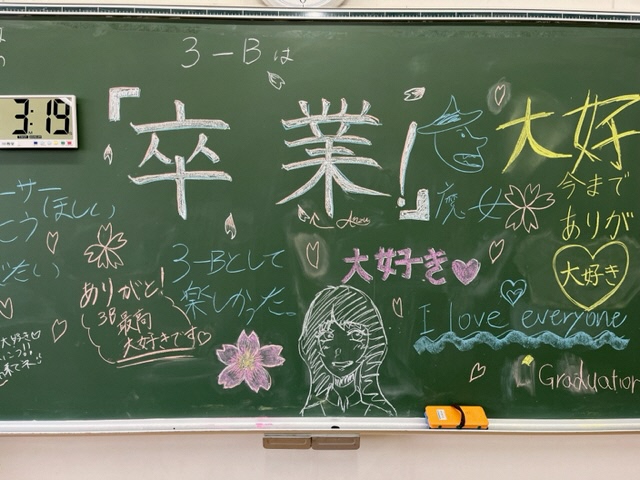 3-Bは
3:19
『卒業!』
大好
虎女
今まで
ありが
大好き
ーサー
ほしい
こう
たい
3-Bとして
楽しかった。
大好き
ありがと!
3B最高
大好きです
I love everyone
Graduation
大好き